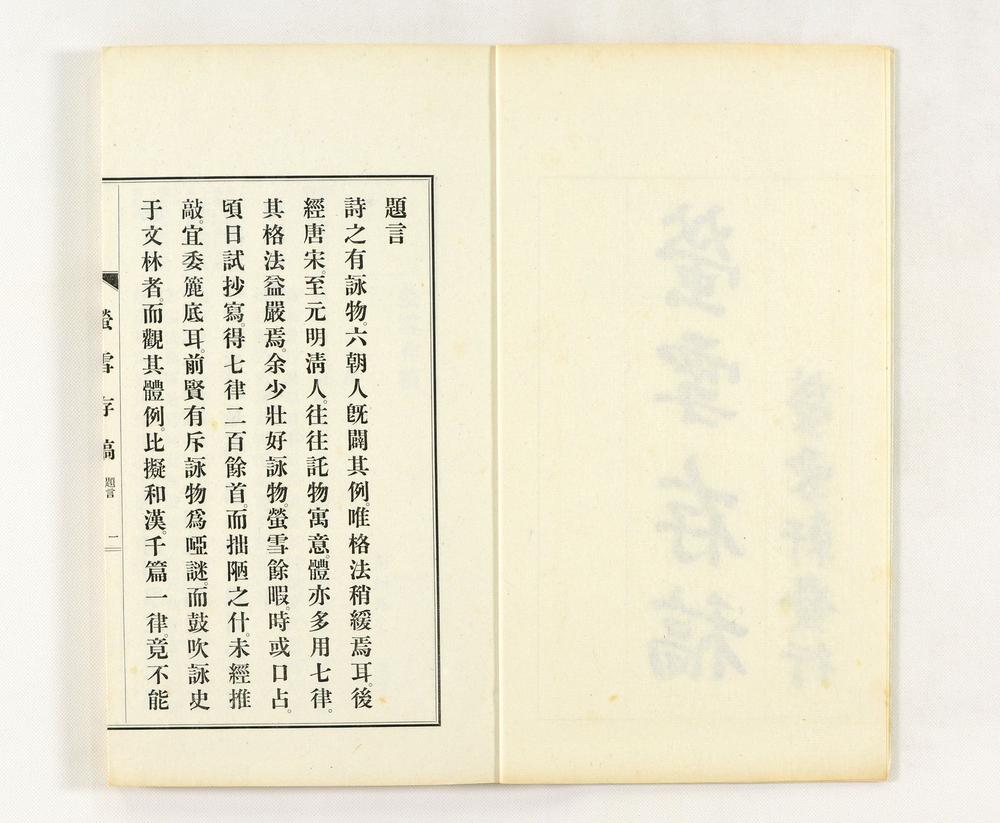 題言
詩之有詠物。六朝人旣闢其例。唯格法稍緩焉耳。後
經唐宋。至元明淸人。往往託物寓意。體亦多用七律。
其格法益嚴焉。余少壯好詠物。螢雪餘暇。時或口占。
頃日試抄寫。得七律二百餘首。而拙陋之什。未經推
敲。宜委簏底耳。前賢有斥詠物爲啞謎。而鼓吹詠史
于文林者。而觀其體例。比擬和漢。千篇一律。竟不能
螢雪存稿 題言 一